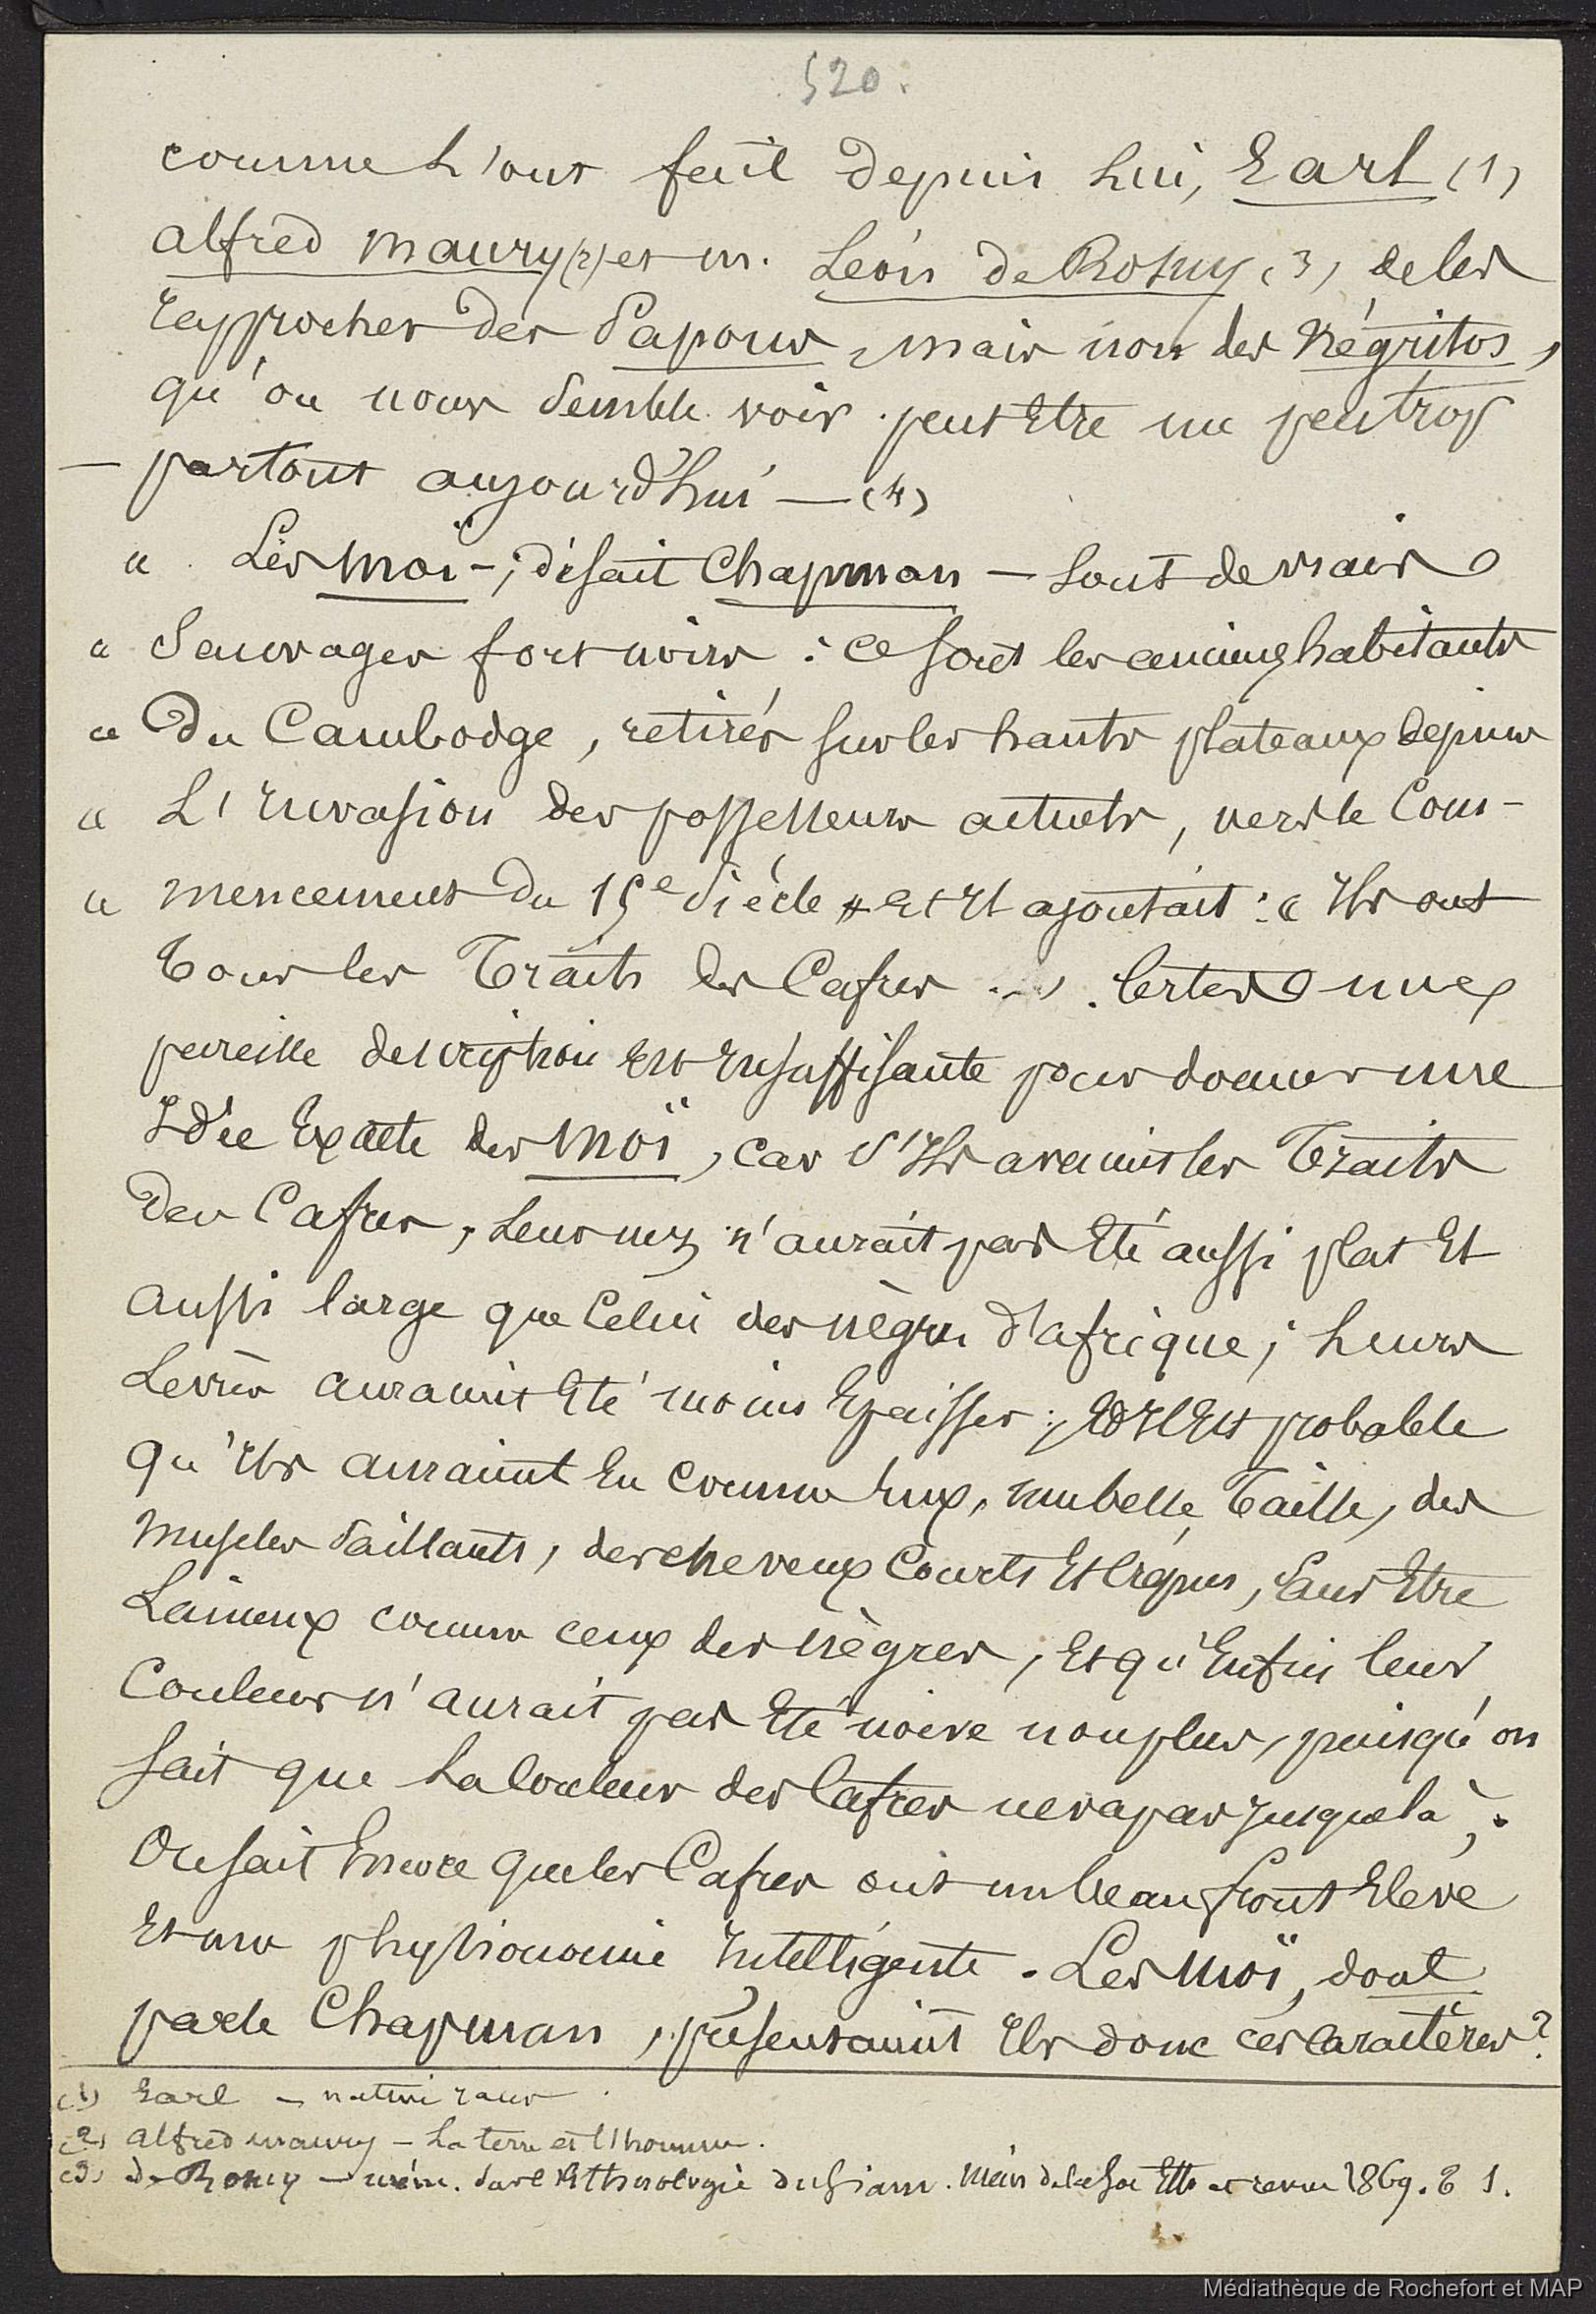 520.
comme l'ont fait depuis lui, Earl (1)
Alfred Maury (2) et M. Léon de Rosny (3), de les
rapprocher des Papous, mais non des Négritos,
qu'on nous semble voir peut être un peu trop
— partout aujourd'hui — (4)
« Les Moï -, disait Chapman — sont de vrais
« sauvages fort noirs : ce sont les anciens habitants
« du Cambodge, retirés sur les hauts plateaux depuis
« l'invasion des possesseurs actuels, vers le com-
« mencement du 15e siècle » et il ajoutait : « Ils ont
tous les traits des Cafres ... » . Certes une
pareille description est insuffisante pour donner une
idée exacte des Moï, car s'ils avaient les traits
des Cafres, leur nez n'aurait pas été aussi plat et
aussi large que celui des nègres d'afrique ; leurs
lèvres auraient été moins épaisses ; et il est probable
qu'ils auraient eu comme eux, une belle taille, des
muscles saillants, des cheveux courts et crépus, sans être
laineux comme ceux des nègres, et qu'enfin leur
couleur n'aurait pas été noire non plus, puisqu'on
sait que la couleur des Cafres ne va pas jusque là ;
on sait encore que les Cafres ont un beau front élevé
et une physionomie intelligente. Les Moï, dont
parle Chapman, présentaient ils donc ces caractères ?
(1) Earl — native races
(2) Alfred Maury — La terre et l'homme.
(3) de Rosny — mém. sur l'Ethnologie du Siam. Mém de la Soc Eth revue 1869. T 1.
Médiathèque de Rochefort et MAP